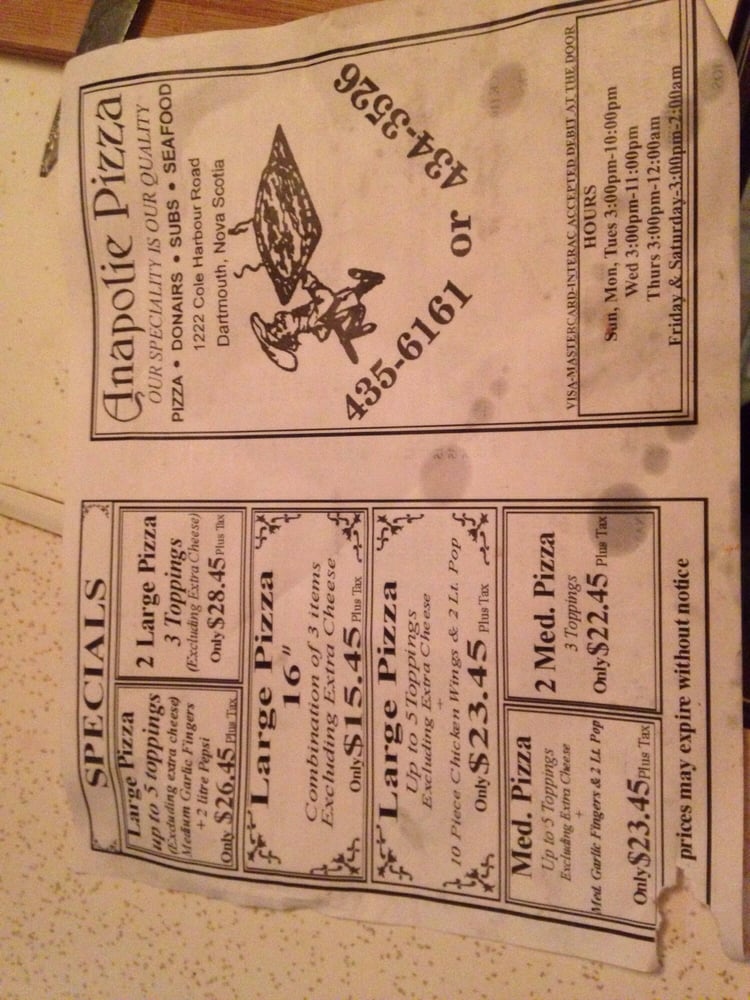 SPECIALS
Large Pizza
up to 5 toppings
(Excluding extra cheese)
Medium Garlic Fingers
+ 2 litre Pepsi
Only $26.45 Plus Tax
2 Large Pizza
3 Toppings
(Excluding Extra Cheese)
Only $28.45 Plus Tax
Large Pizza
16"
Combination of 3 items
Excluding Extra Cheese
Only $15.45 Plus Tax
Large Pizza
Up to 5 Toppings
Excluding Extra Cheese
+
10 Piece Chicken Wings & 2 Lt. Pop
Only $23.45 Plus Tax
Med. Pizza
Up to 5 Toppings
Excluding Extra Cheese
+
Med. Garlic Fingers & 2 Lt. Pop
Only $23.45 Plus Tax
2 Med. Pizza
3 Toppings
Only $22.45 Plus Tax
prices may expire without notice
Anapolie Pizza
OUR SPECIALITY IS OUR QUALITY
PIZZA • DONAIRS • SUBS • SEAFOOD
1222 Cole Harbour Road
Dartmouth, Nova Scotia
435-6161 or 434-3526
VISA-MASTERCARD-INTERAC ACCEPTED DEBIT AT THE DOOR
HOURS
Sun, Mon, Tues 3:00pm-10:00pm
Wed 3:00pm-11:00pm
Thurs 3:00pm-12:00am
Friday & Saturday-3:00pm-2:00am